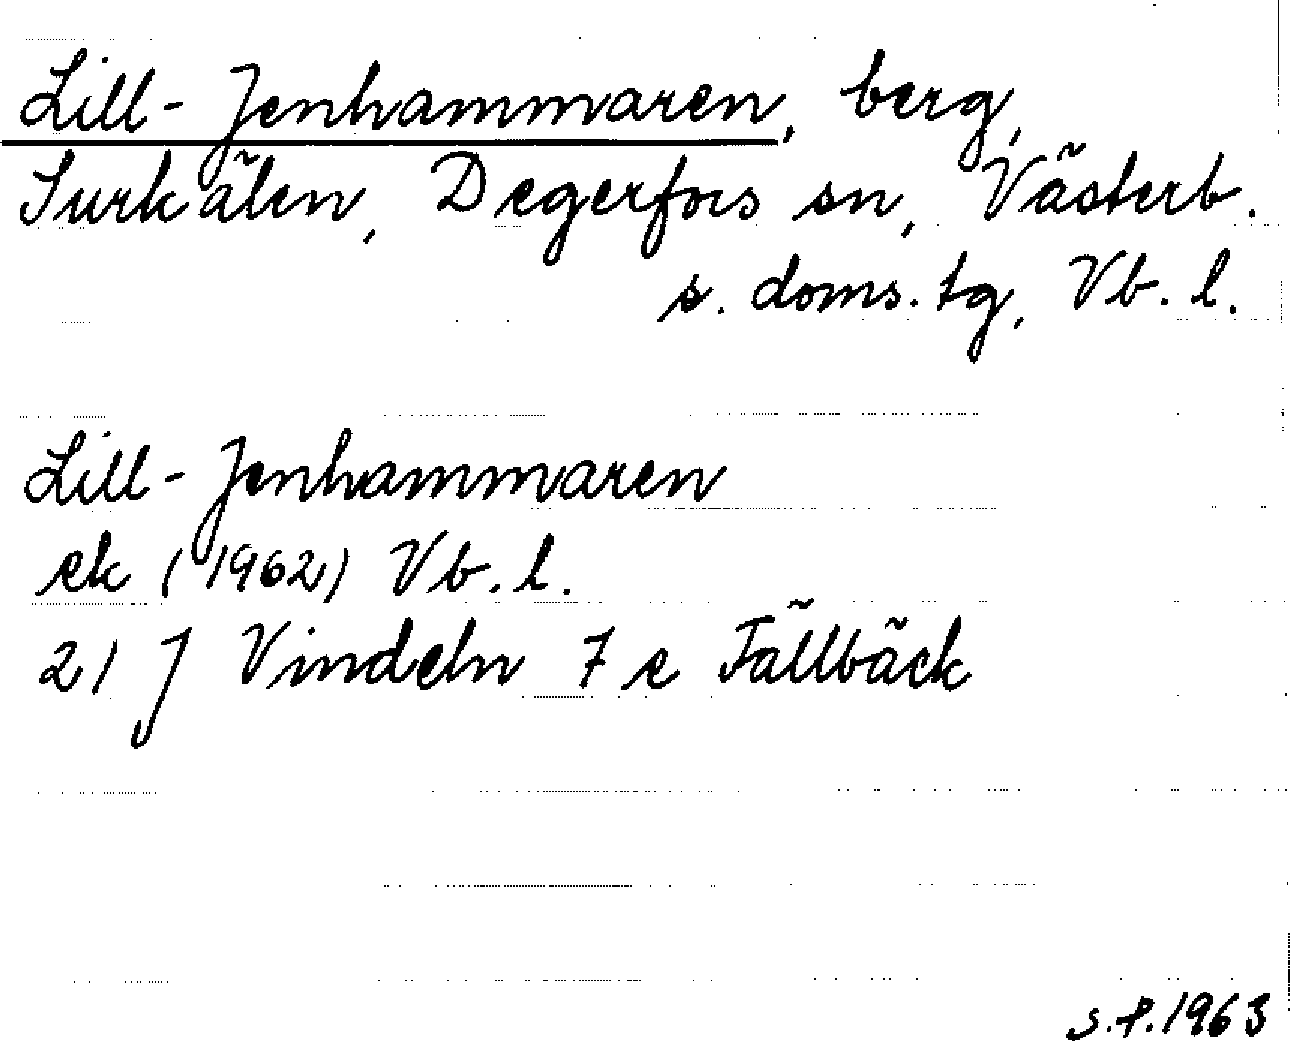 Lill-Jenhammaren, berg,
Surkälen, Degerfors sn, Västerb.
s. doms. tg, Vb. l.
Lill-Jenhammaren
ek (1962) Vb. l.
21 J Vindeln 7 e Fällbäck
s.f. 1963